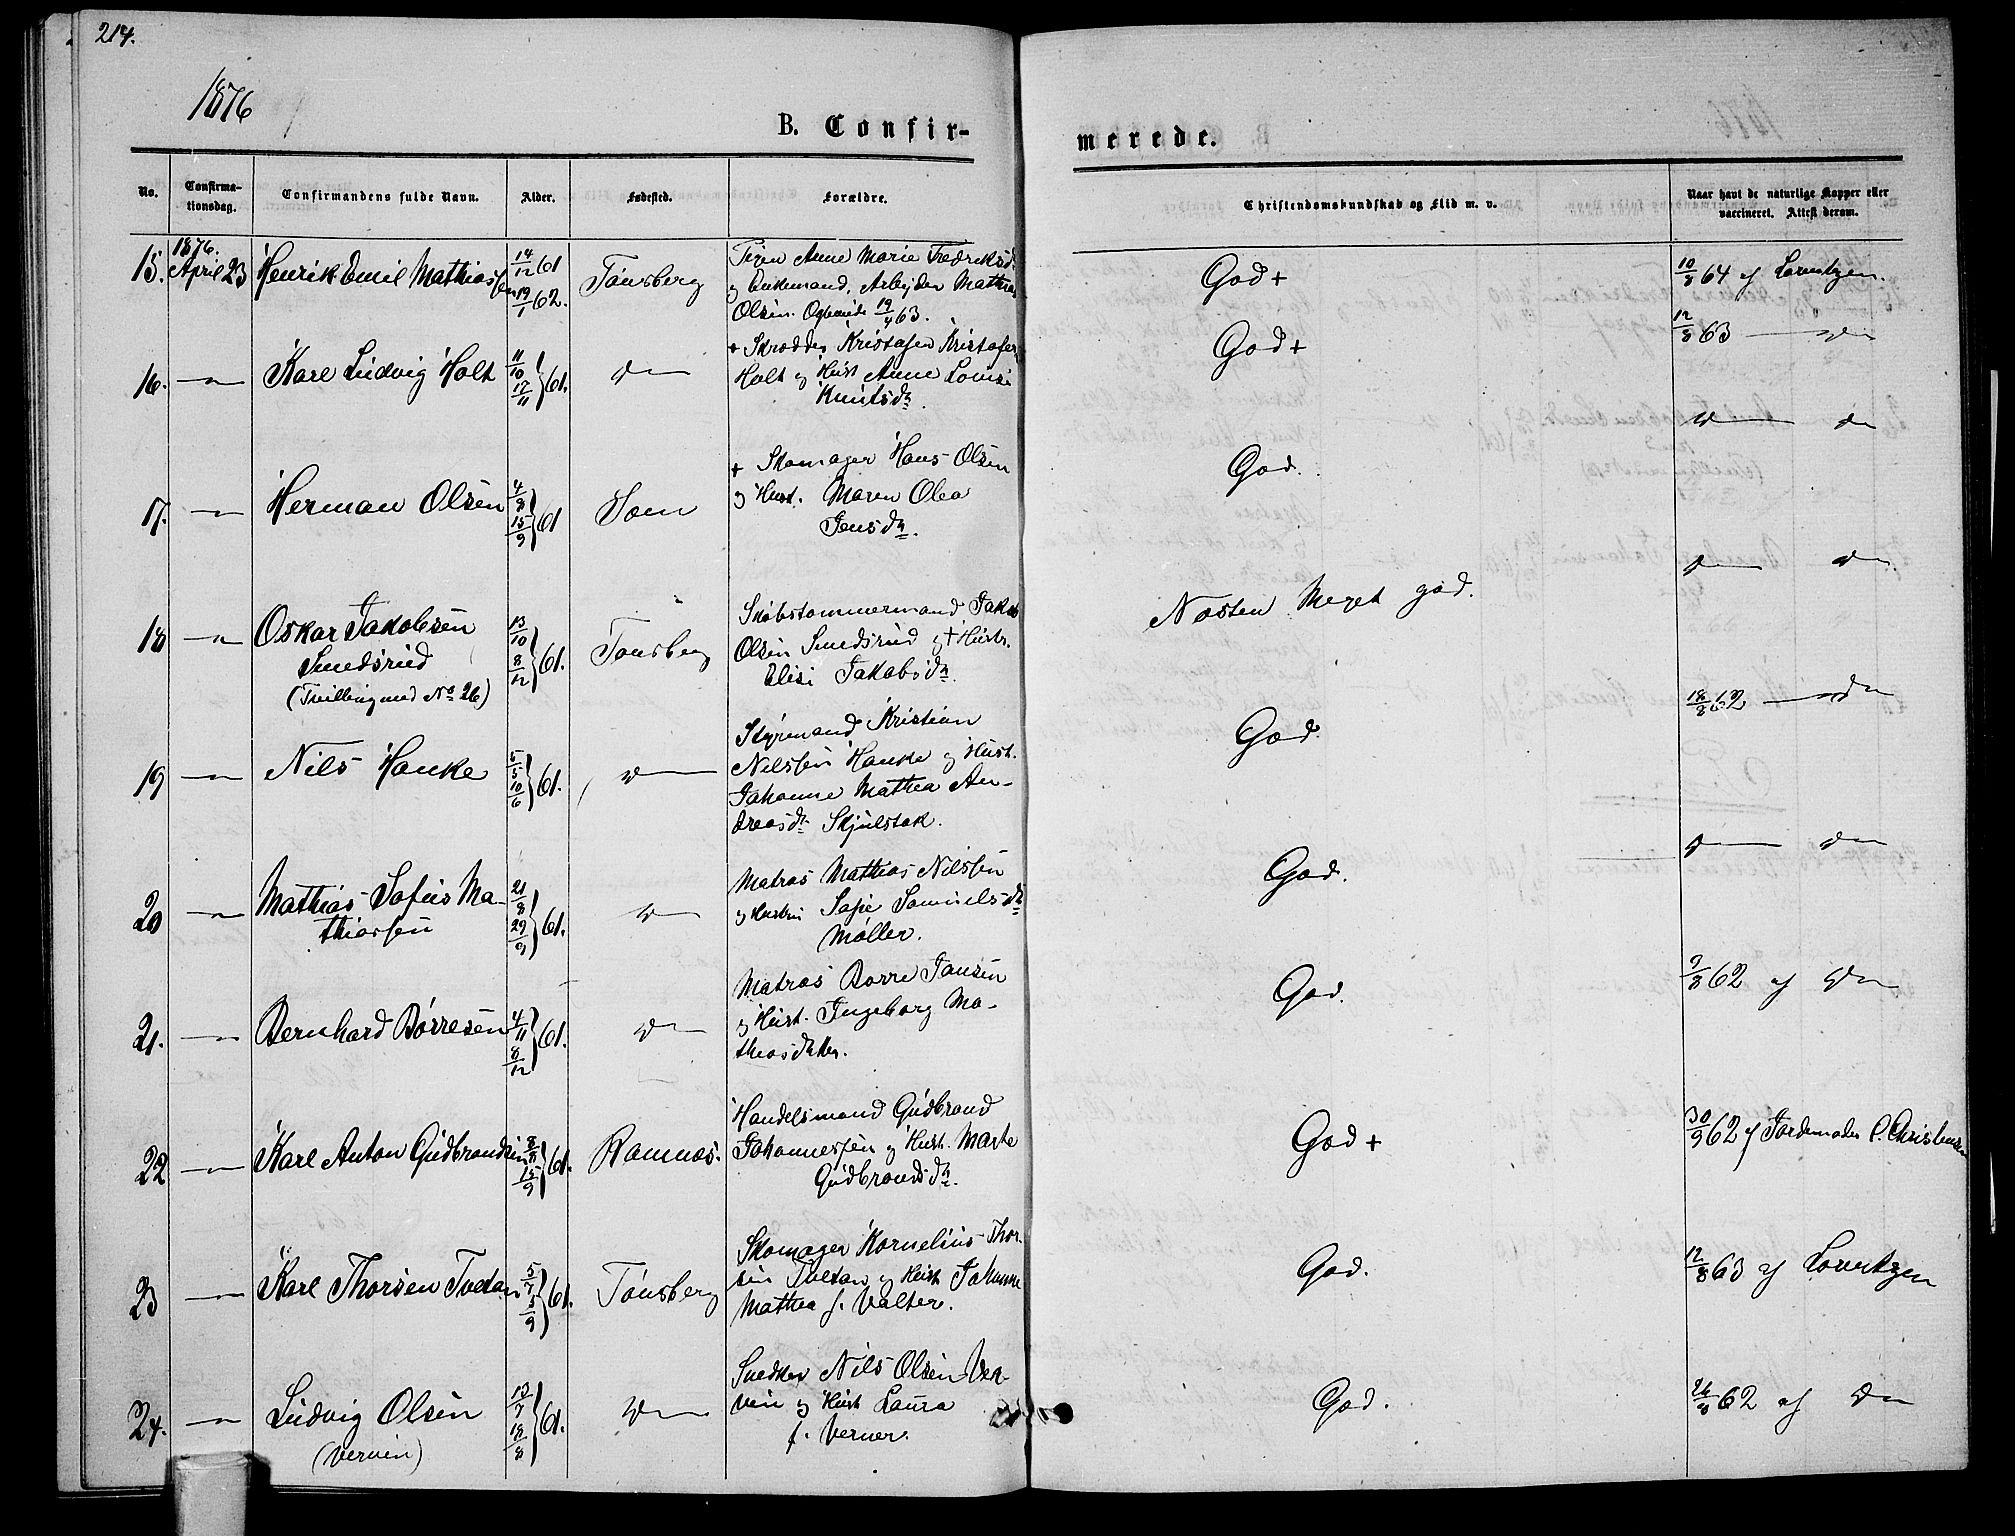 214.
1876
B. Confir-
merede.
No.
Confirma-
tionsdag.
Confirmandens fulde Navn.
Alder.
Fødested.
Forældre.
Christendomskundskab og Flid m. v.
Naar havt de naturlige Kopper eller
vaccineret. Attest derom.
15. 1876. April 23 Henrik Emil Mathiassen 14/12 61 19/1 62. Tönsberg
Pigen Anne Marie Fredriksd.
og Enkemand, Arbejder Mathias
Olsen. 19/4 63.
God +
10/8 64 af Lorentzen.
16. —"— Karl Ludvig Holt 11/10 17/11 } 61. do
+ Skrædder Kristofen Kristofer
Holt og Hust Anne Lovise
Knutsdtr.
God +
12/8 63 — do
17. —"— Herman Olsen 4/8 15/9 } 61 Sem
+ Skomager Hans Olsen
og Hust. Maren Olea
Jensdtr.
God.
do — do
18 —"— Oskar Jakobsen
Smedsrud
(Tvilling med No 26)
13/10 8/12 } 61. Tönsberg
Skibstømmermand Jakob
Olsen Smedsrud og + Hustr.
Elisi Jakobsdtr.
Næsten Meget god.
do — do
19 —"— Nils Hanke 5/5 10/6 } 61. do
Styrmand Kristian
Nilssen Hanke og Hust.
Johanne Mathea An-
dreasdtr Skjulstak.
God.
18/8 62 — do
20 —"— Mathias Sofus Ma-
thiassen
21/8 29/9 } 61. do
Matros Mathias Nilssen
og Hustru Sofie Samuelsdtr
Møller.
God.
do — do
21. —"— Bernhard Börresen 4/11 8/12 } 61. do
Matros Børre Jansen
og Hust. Ingeborg Ma-
thiasdatter.
God.
9/8 62 af do
22 —"— Karl Anton Gudbrandsen 8/8 15/9 } 61. Ramnæs.
Handelsmand Gudbrand
Johannessen og Hust. Marte
Gudbrandsdtr.
God +
30/9 62 af Jordemoder C. Christensen
23 —"— Karl Thorsen Tvetan 5/7 5/9 } 61. Tönsberg
Skomager Kornelius Thor-
sen Tvetan og Hust Johanne
Mathea f. Valter.
God.
12/8 63 af Lorentzen
24. —"— Ludvig Olsen
(Vervin)
13/7 18/8 } 61. do
Snedker Nils Olsen Ver-
vin og Hust Laura
f. Verner.
God.
26/8 62 af do